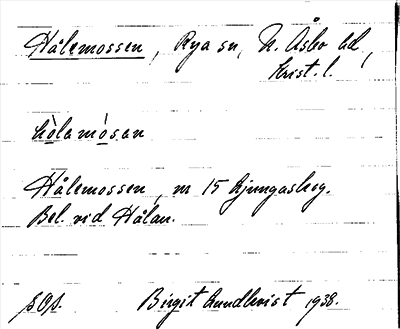 Hålemossen, Rya sn, N. Åsbo hd,
Krist. l.
hòlamósan
Hålemossen, m 15 Ljungaskog.
Bel. vid Hålan.
Birgit Lundkvist 1938.